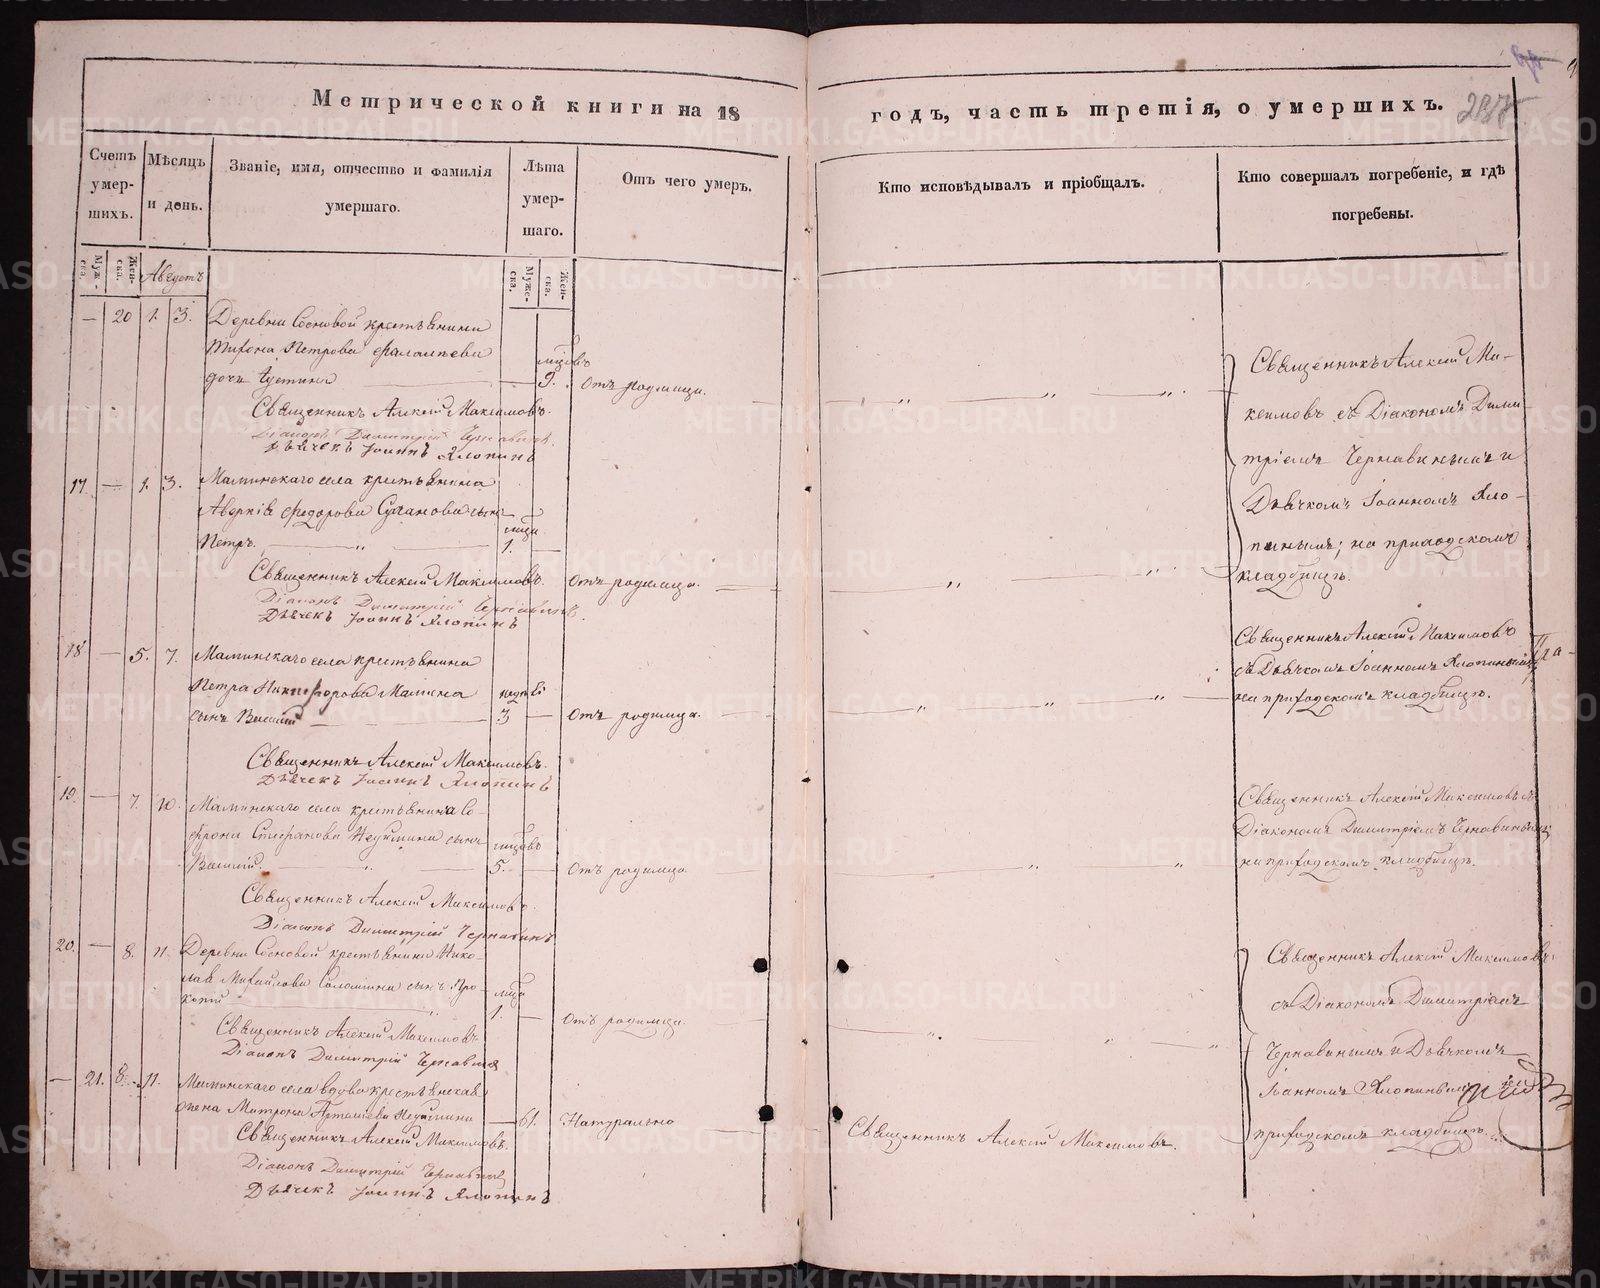 Метрической книги на 18 годъ, часть третія, о умершихъ.
Счетъ умершихъ.
Мѣсяцъ и день.
Званіе, имя, отчество и фамилія
умершаго.
Лѣта умершаго.
Отъ чего умеръ.
Кто исповѣдывалъ и пріобщалъ.
Кто совершалъ погребеніе, и гдѣ
погребены.
Мужеска.
Женска.
Августъ
Мужеска.
Женска.
— 20 1. 3. Деревни Сосновой крестьянина
Тихона Петрова
дочь Устина 9. Отъ родимца.
Священникъ Алексій Максимовъ.
Діаконъ Димитрій Чернавинъ.
Дьячекъ Іоаннъ Хлопинъ
Священникъ Алексій Ма-
ксимовъ съ Діакономъ Дими
тріемъ Чернавинымъ и
Дьячкомъ Іоанномъ Хло-
пинымъ; на приходскомъ
кладбищѣ.
17. — 1. 3. Маминскаго села крестьянина
Аверкія Федорова сынъ
Петръ. 1. Отъ родимца.
Священникъ Алексій Максимовъ.
Діаконъ Димитрій Чернавинъ.
Дьячекъ Іоаннъ Хлопинъ
18 — 5. 7. Маминскаго села крестьянина
Петра Никифорова Мамина
сынъ Василій 3 — Отъ родимца.
Священникъ Алексій Максимовъ.
Дьячекъ Іоаннъ Хлопинъ
Священникъ Алексій Максимовъ
съ Дьячкомъ Іоанномъ Хлопинымъ
на приходскомъ кладбищѣ.
19. — 7. 10. Маминскаго села крестьянина Со-
фрона Стефанова Неуймина сынъ
Василій. 5. — Отъ родимца.
Священникъ Алексій Максимовъ.
Діаконъ Димитрій Чернавинъ
Священникъ Алексій Максимовъ съ
Діакономъ Димитріемъ Чернавинымъ
на приходскомъ кладбищѣ.
20. — 8. 11. Деревни Сосновой крестьянина Нико-
лая Михайлова Соломеина сынъ Про-
копій 1. — Отъ родимца.
Священникъ Алексій Максимовъ
Діаконъ Димитрій Чернавинъ
Священникъ Алексій Максимовъ
съ Діакономъ Димитріемъ
Чернавинымъ и Дьячкомъ
Іоанномъ Хлопинымъ
приходскомъ кладбищѣ.
— 21. 8. 11. Маминскаго села вдова крестьянская
жена Матрона Неуймина — 61. Натурально
Священникъ Алексій Максимовъ.
Священникъ Алексій Максимовъ.
Діаконъ Димитрій Чернавинъ
Дьячекъ Іоаннъ Хлопинъ
METRIKI.GASO-URAL.RU